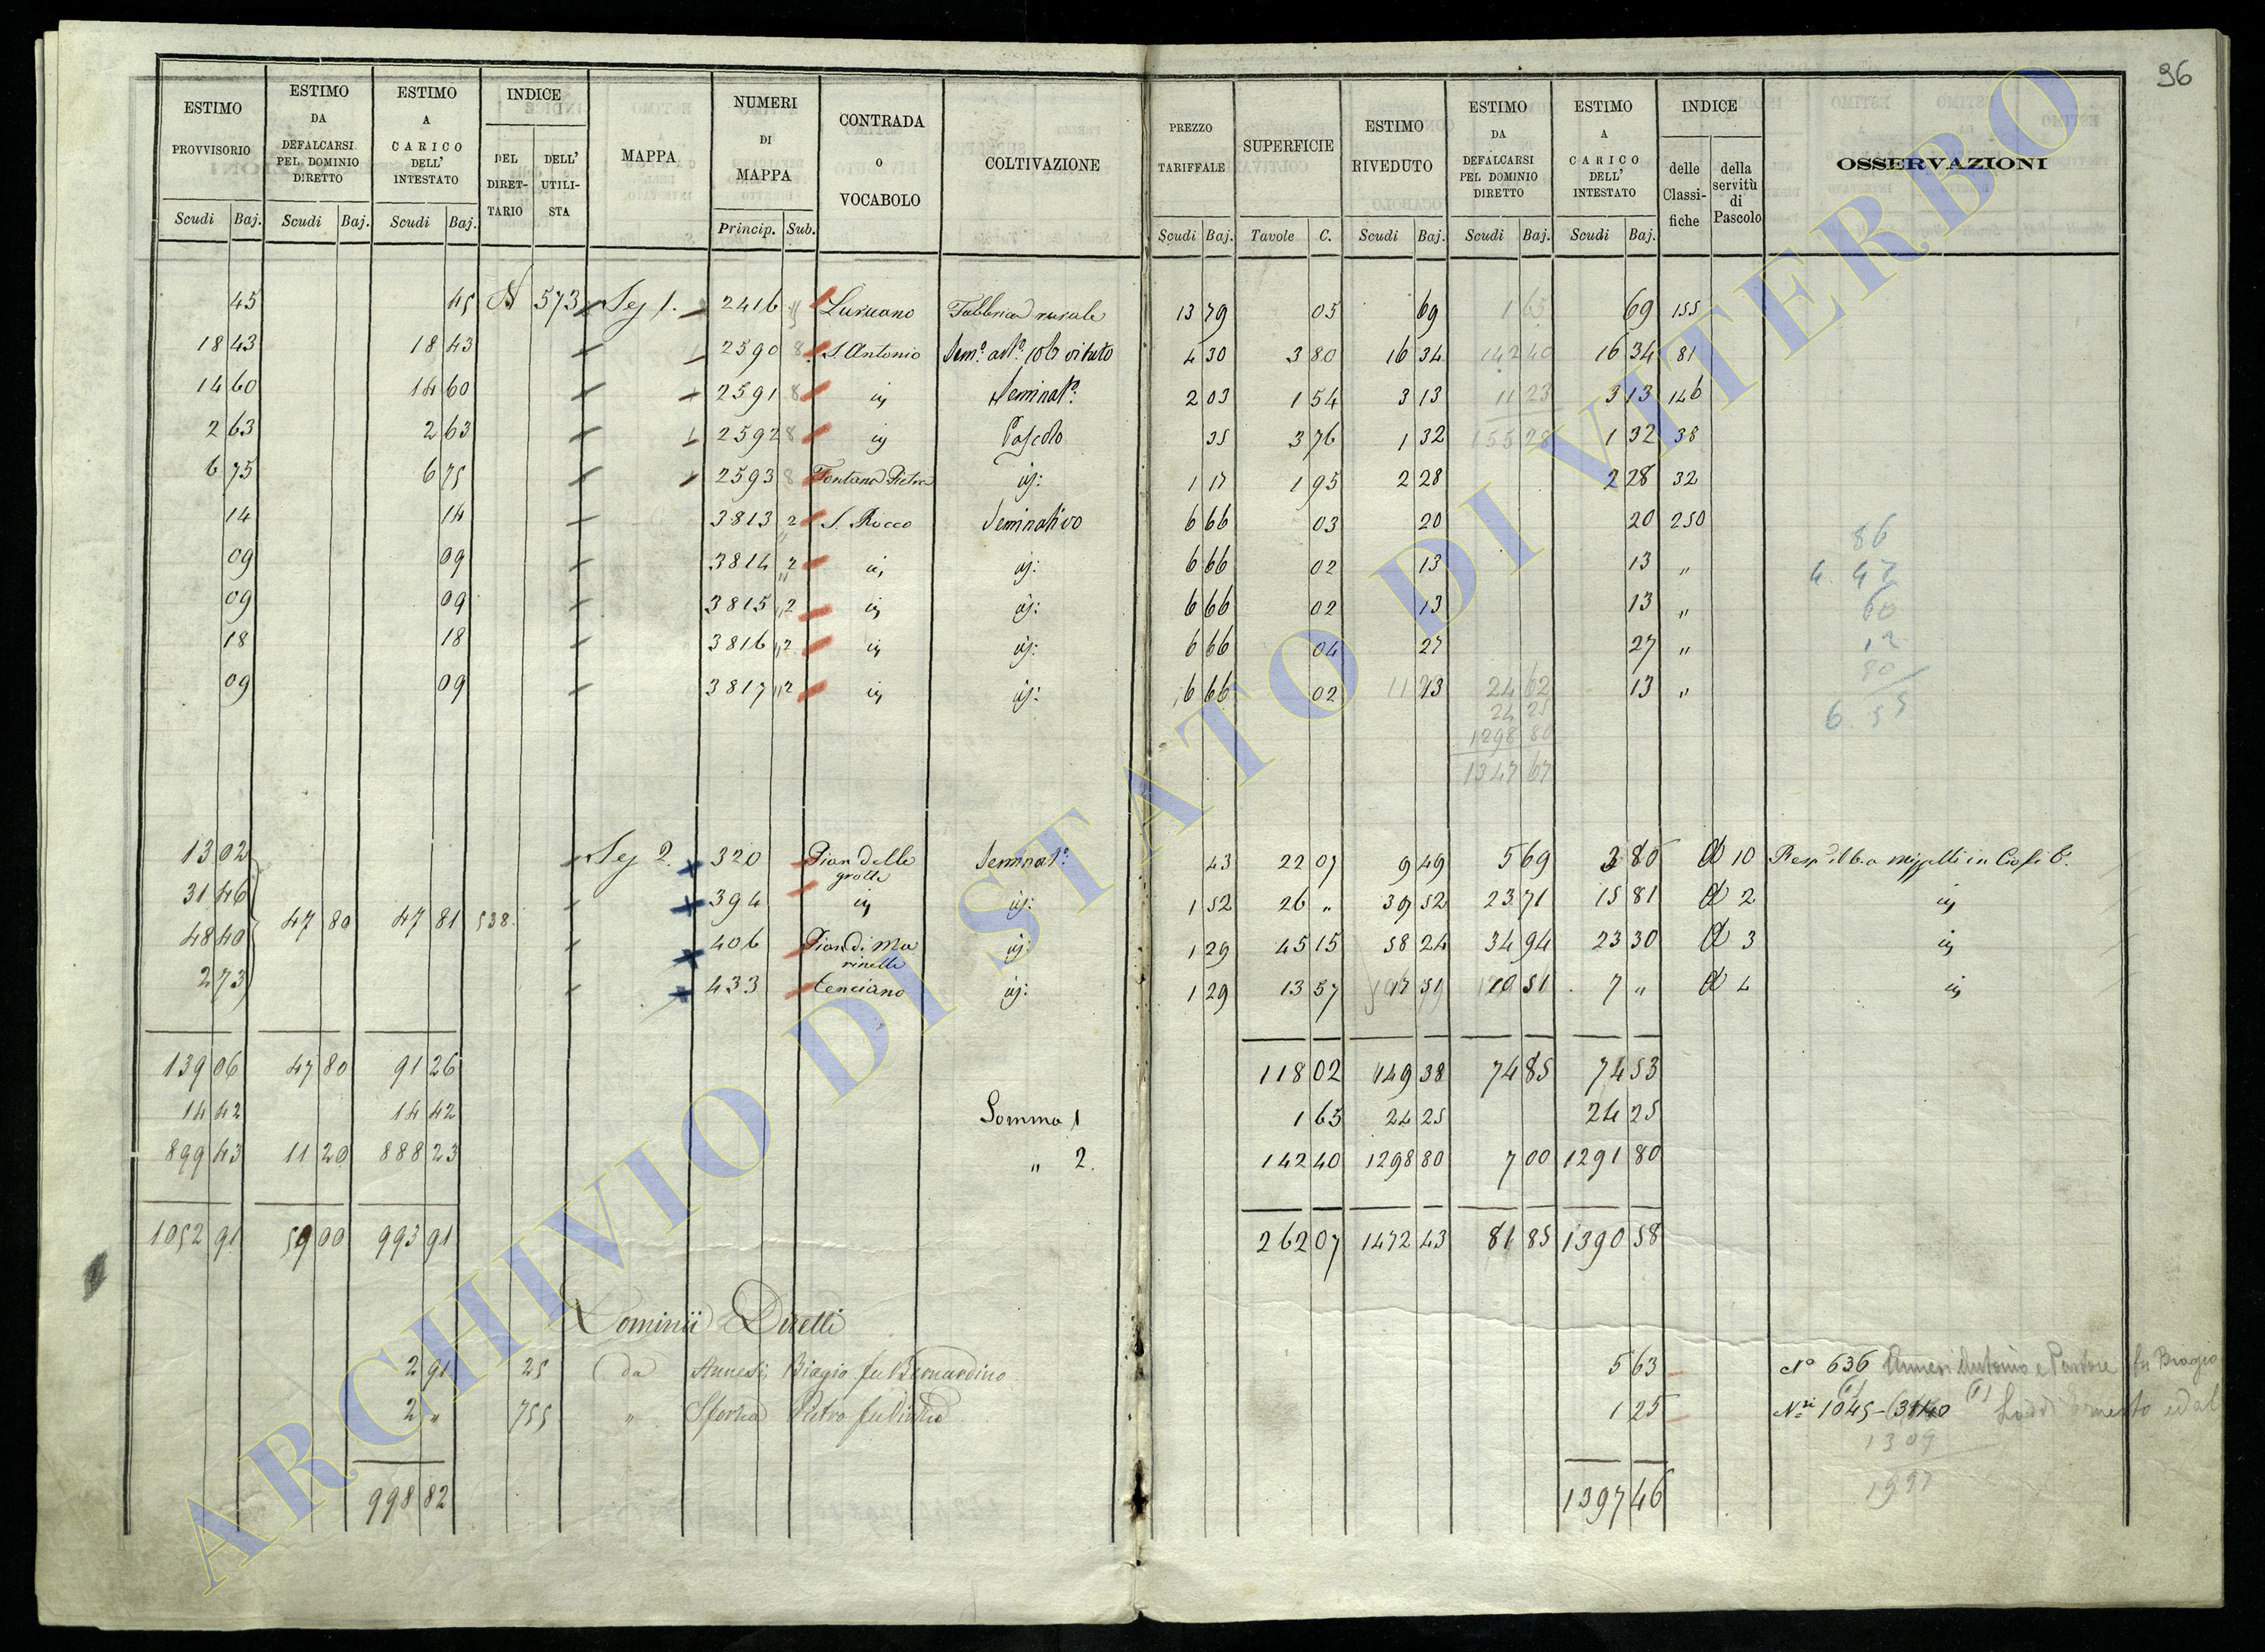 96
ESTIMO PROVVISORIO Scudi Baj. ESTIMO DA DEFALCARSI PEL DOMINIO DIRETTO Scudi Baj. ESTIMO A CARICO DELL' INTESTATO Scudi Baj. INDICE DEL DIRET-TARIO DELL' UTILI-STA MAPPA NUMERI DI MAPPA Princip. Sub. CONTRADA O VOCABOLO COLTIVAZIONE PREZZO TARIFFALE Scudi Baj. SUPERFICIE Tavole C. ESTIMO RIVEDUTO Scudi Baj. ESTIMO DA DEFALCARSI PEL DOMINIO DIRETTO Scudi Baj. ESTIMO A CARICO DELL' INTESTATO Scudi Baj. INDICE delle Classi-fiche della servitù di Pascolo OSSERVAZIONI
45 45 573 Sez 1. 2416 Fabbrica rurale 13 79 05 69 1 63 69 155
18 43 18 43 2590 8 S. Antonio 4 30 3 80 16 34 142 40 16 34 81
14 60 14 60 2591 8 Seminat° 2 03 1 54 3 13 11 23 3 13 146
2 63 2 63 2592 8 Pascolo 35 3 76 1 32 155 28 1 32 38
6 75 6 75 2593 8 Fontana Pietra 1 17 1 95 2 28 2 28 32
14 14 3813 2 S. Rocco Seminativo 6 66 03 20 20 250
09 09 3814 " 2 6 66 02 13 13 "
09 09 3815 " 2 6 66 02 13 13 "
18 18 3816 " 2 6 66 04 27 27 "
09 09 3817 " 2 6 66 02 13 24 62 13 "
86
4. 42
60
12
80
6. 55
24 25
1298 80
1347 67
13 02 Sez 2. 320 Pian delle grotte Seminat° 43 22 07 9 49 5 69 3 80 10
31 46 394 1 52 26 " 39 52 23 71 15 81 2
47 80 47 81 538
48 40 406 Pian di Marinelle 1 29 45 15 58 24 34 94 23 30 3
2 73 433 Cenciano 1 29 13 57 17 51 10 51 7 " 4
139 06 47 80 91 26 118 02 149 38 74 85 74 53
14 42 14 42 Somma 1 1 65 24 25 24 25
899 43 11 20 888 23 " 2. 142 40 1298 80 7 00 1291 80
1052 91 59 00 993 91 262 07 1472 43 81 85 1390 58
Dominii Diretti
2 91 25 da Annesi Biagio fu Bernardino 5 63 N° 636 Annesi Antonio e Pastore fu Biagio
2 " 755 " Sforza Pietro 1 25 N.ri 1045 - 3140 Ernesto ed al
1309
1997
998 82 1397 46
ARCHIVIO DI STATO DI VITERBO